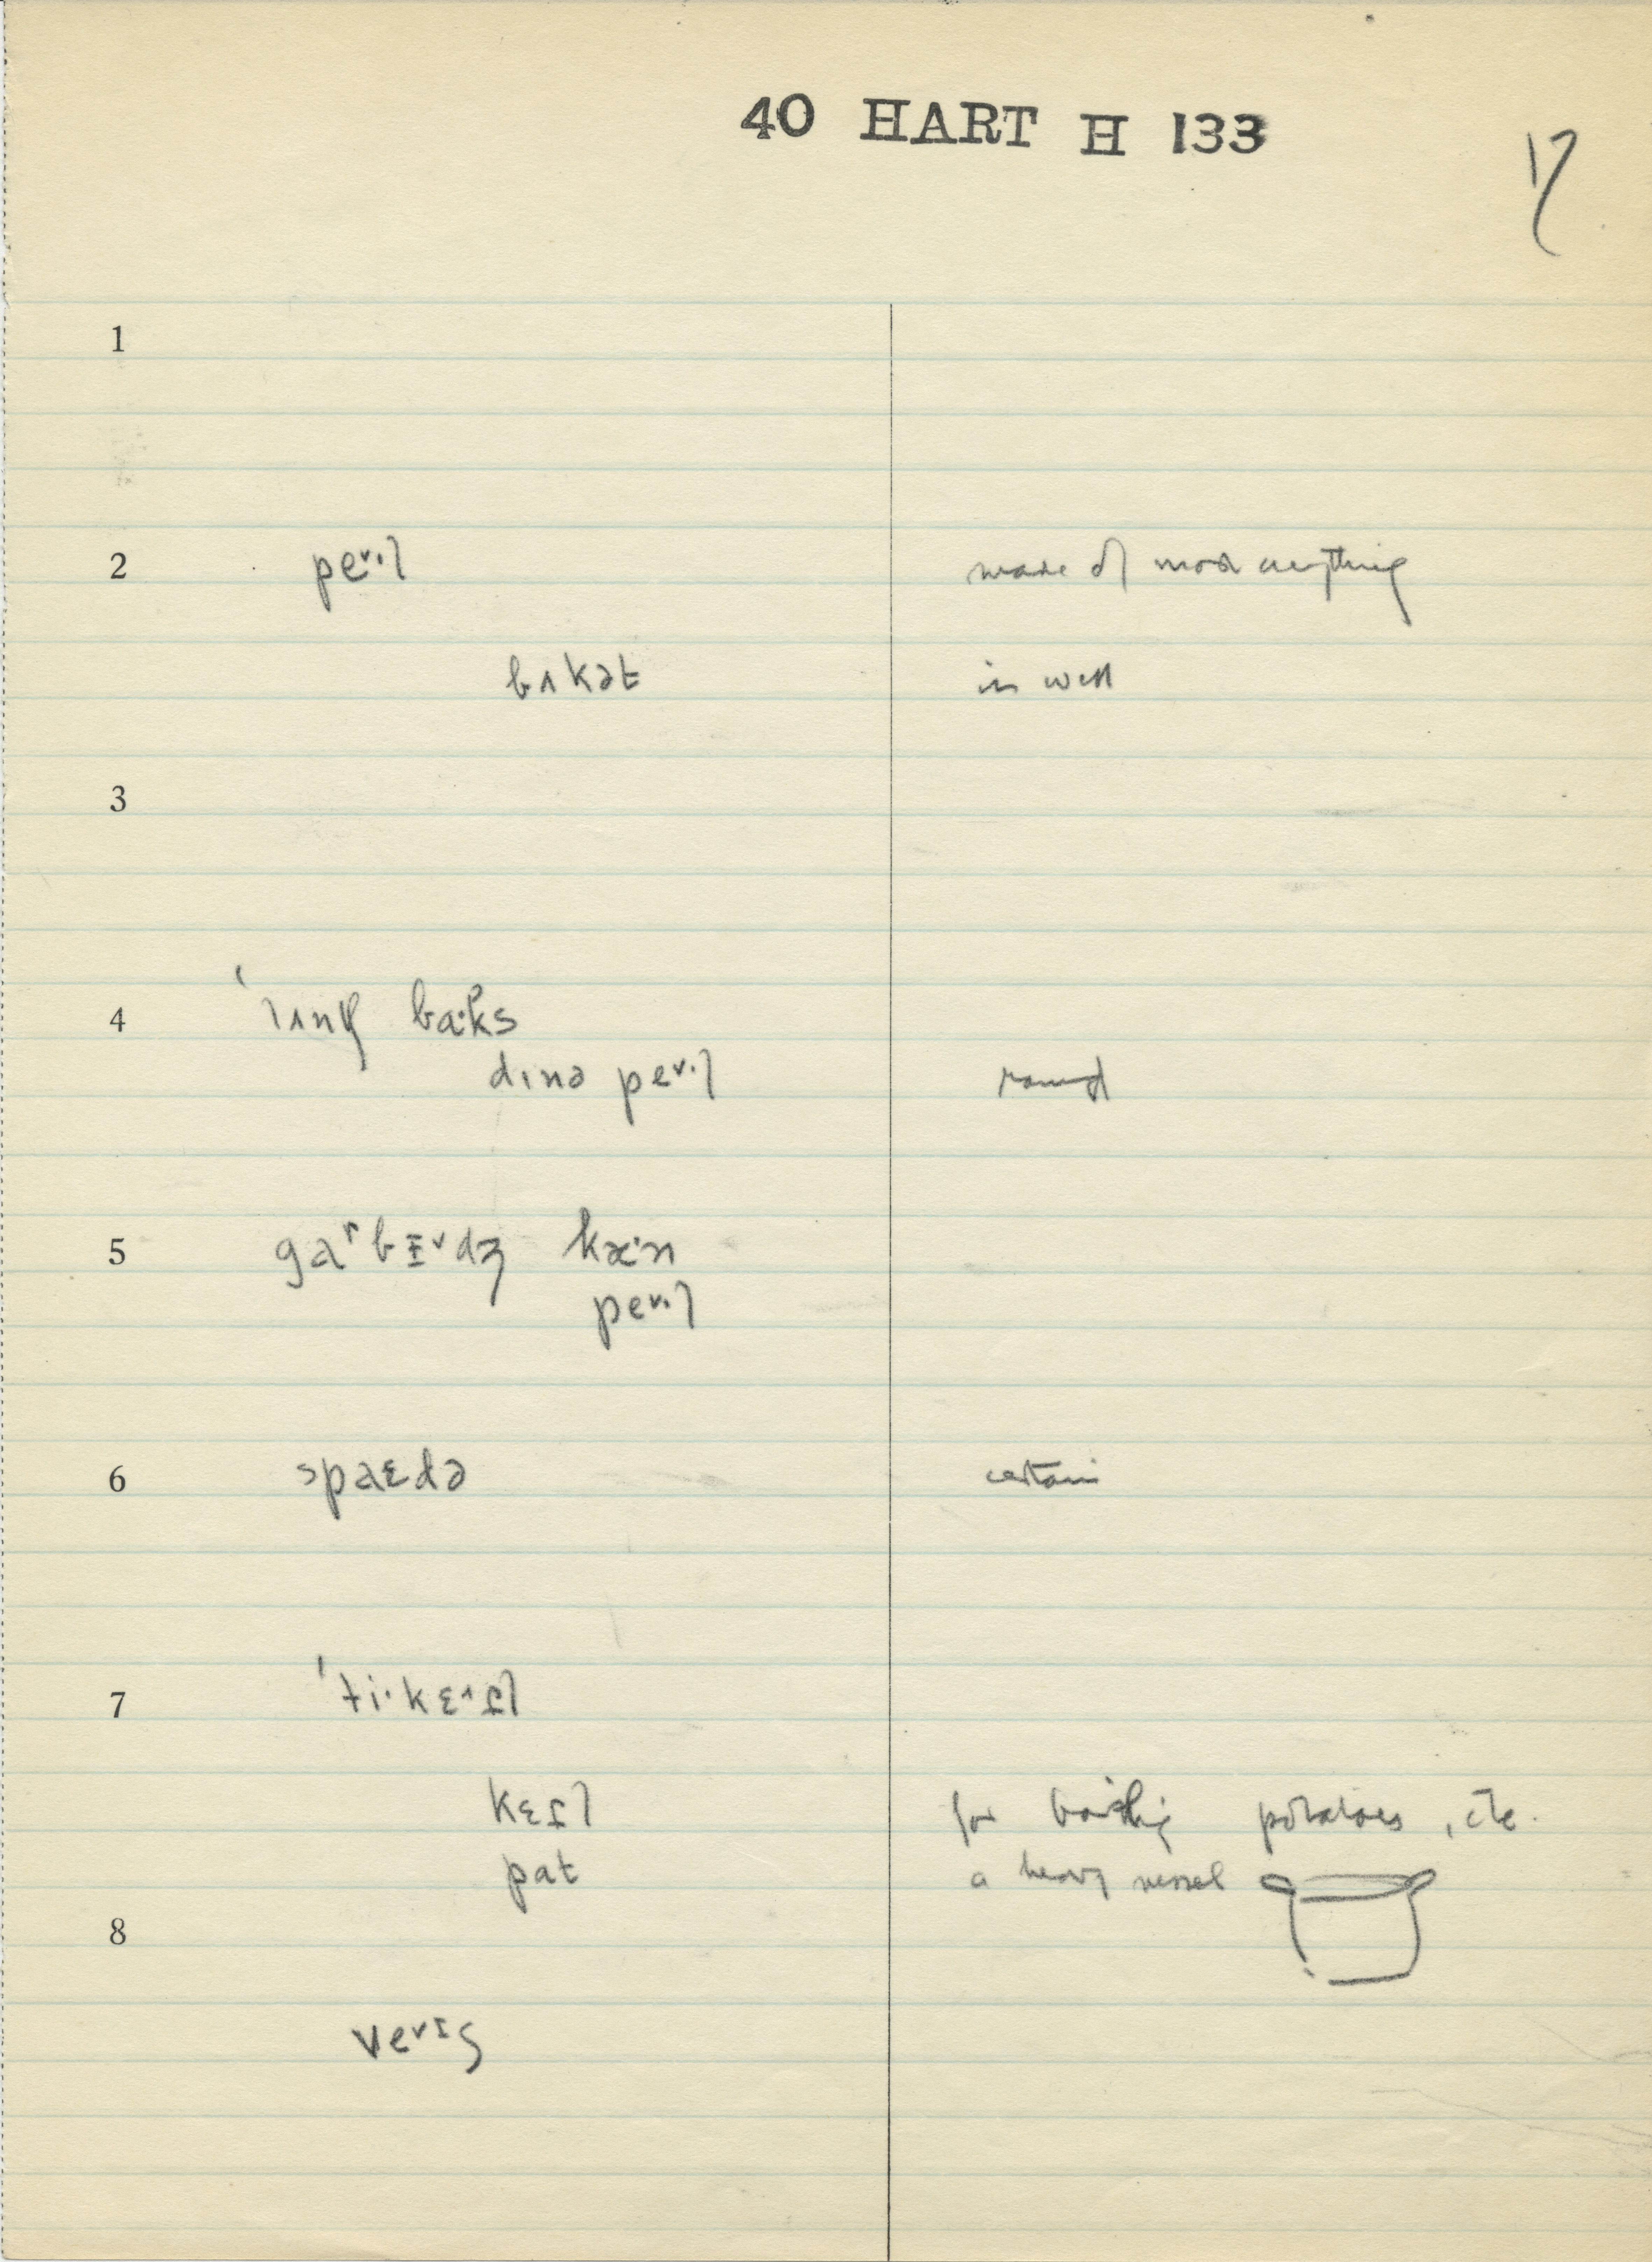 40 HART H 133
17
1
2 pe˅·l made of most anything
bʌkət in well
3
4 ˈlʌnʧ ba·ks
dɪnə pe˅·l round
5 gaʳbɪ˅dʒ kæ·n
pe˅·l
6 spaɛdə certain
7 ˈti·kɛ^tl
kɛtl for boiling potatoes, etc.
pat a heavy vessel
8
ve˅ɪs